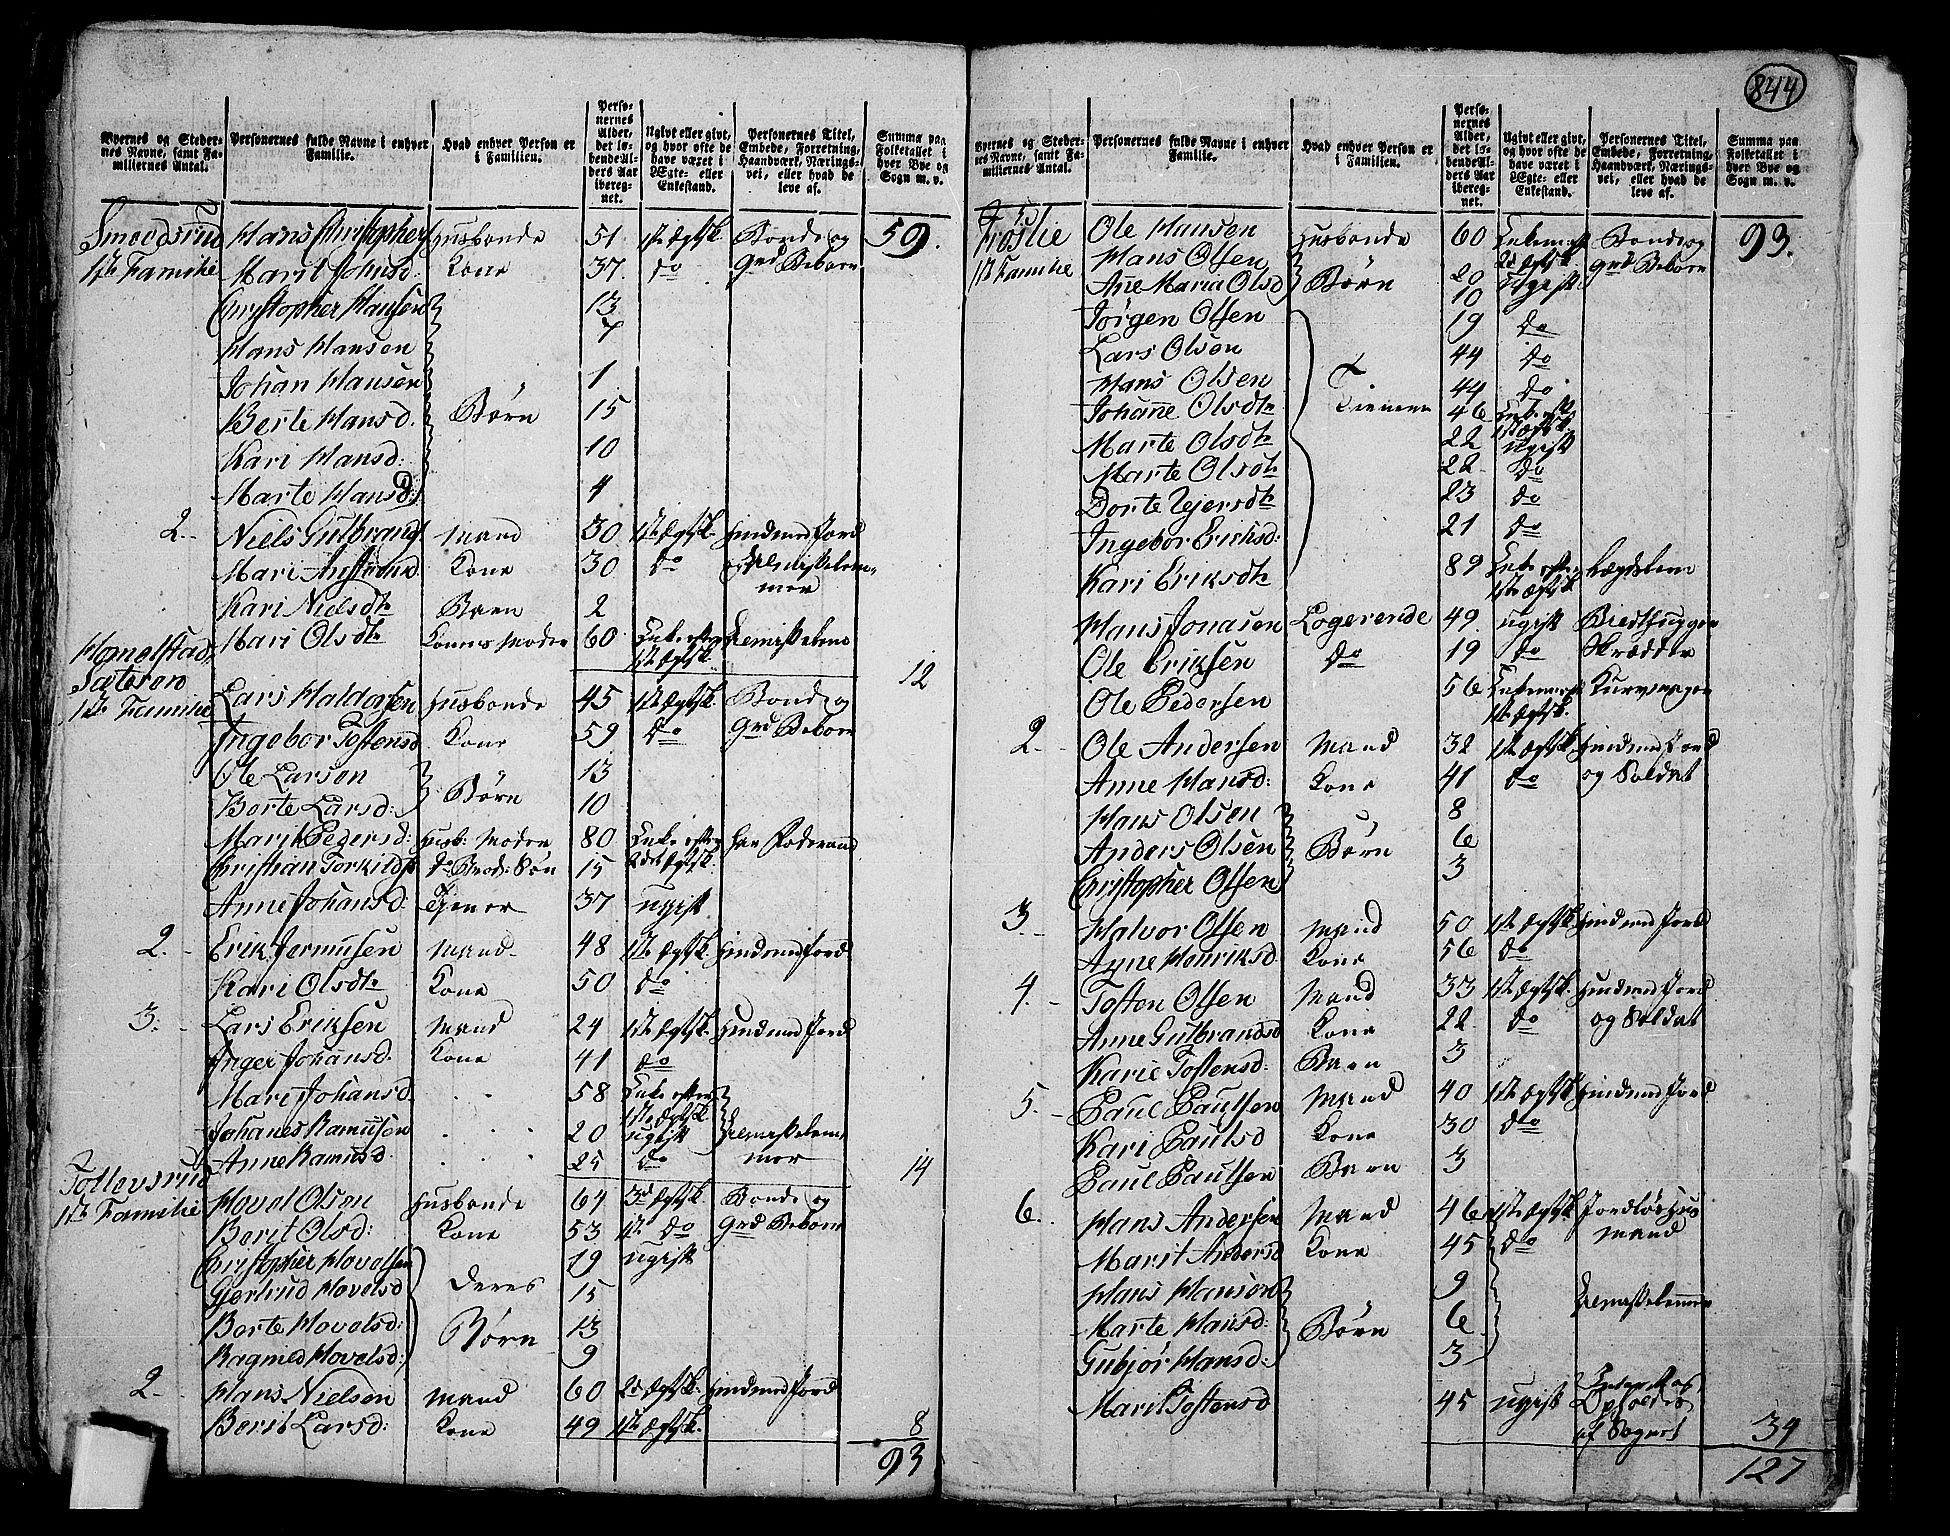 844
Byernes og Stedernes Navne, samt Familiernes Antal.
Personernes fulde Navne i enhver Familie.
Hvad enhver Person er i Familien.
Personernes Alder, det løbende Alders Aar iberegnet.
Ugivt eller givt, og hvor ofte de have været i Ægte- eller Enkestand.
Personernes Titel, Embede, Forretning, Haandværk, Næringsvei, eller hvad de leve af.
Summa paa Folketallet i hver Bye og Sogn m. v.
Smedsrud Hans Christopher Husbonde 51 1ste Ægtsk. Bonde og 59.
1ste Familie Marit Johnsd: Kone 37. do Grd Beboer
Christopher Hansen 13
Hans Hansen 7
Johan Hansen 1
Berte Hansd. Børn 15
Kari Hansd: 10
Marte Hansd: 4
2. Niels Gulbrands Mand 30 1ste Ægtsk. Huusmd Jord
Mari Kone 30 do
Kari Nielsdtr Barn 2
Mari Olsdtr Konens Moder 60 Enke efter
1ste Ægtsk. 12
1ste Familie Lars Haldorsen Husbonde 45 1ste Ægtsk. Bonde og
Ingebor Tostensd Kone 59 do Grd Beboer
Ole Larsen 13
Berte Larsd: Børn 10
Marit Pedersd: Husb: Moder 80 Enke efter
Christian Torkilds 15 2det Ægtsk.
Anne Johansd: Tjener 37 ugift
2. Erik Jermusen Mand 48 1ste Ægtsk. Huusmd Jord
Kari Olsdtr Kone 50 do
3. Lars Eriksen Mand 24 1ste Ægtsk. Huusmd Jord
Inger Johansd. Kone 41 do
Mari Johansd. 58 Enke efter
1ste Ægtsk
Johanes Ramusen 20 ugift
Anne Ramusd. 25 do 14
Tollevsrud
1ste Familie Hovel Olsen Husbonde 64 3d Ægtsk. Bonde og
Berit Olsd: Kone 53 1ste do Grd Beboer
Christopher Hovelsen 19 ugift
Gjertrud Hovelsd Deres 15
Berte Hovelsd: Børn 13
Ragnild Hovelsd: 9
2. Hans Nielsen Mand 60 2d Ægtsk. Huusmd Jord
Berit Larsd: Kone 49 1ste Ægtsk. 8
93
Byernes og Stedernes Navne, samt Familiernes Antal.
Personernes fulde Navne i enhver Familie.
Hvad enhver Person er i Familien.
Personernes Alder, det løbende Alders Aar iberegnet.
Ugivt eller givt, og hvor ofte de have været i Ægte- eller Enkestand.
Personernes Titel, Embede, Forretning, Haandværk, Næringsvei, eller hvad de leve af.
Summa paa Folketallet i hver Bye og Sogn m. v.
Frøslie Ole Hansen Husbonde 60 Enkemand Bonde og 93.
1ste Familie Hans Olsen 20 2d Ægtsk Grd Beboer
Ane Maria Olsd Børn 10 ugift
Jørgen Olsen 19 do
Lars Olsen 44 do
Hans Olsen 44 do
Johane Olsdtr Tienere 46 Enke efter
Marte Olsdtr 22 1ste Ægtsk. ugift
Marte Olsdtr 22 do
Dorte Ejersdtr 23 do
Ingebor Eriksd: 21 do
Kari Eriksdtr 89 Enke efter Lægdslem
1ste Ægtsk
Hans Jonasen Logerende 49 ugift
Ole Eriksen do 19 do Skrædder
Ole Pedersen 56 Enkemand
1ste Ægtsk.
2. Ole Andersen Mand 32 1ste Ægtsk Huusmd Jord
Anne Hansd: Kone 41 do og Soldat
Hans Olsen 8
Anders Olsen Børn 6
Christopher Olsen 3
3. Halvor Olsen Mand 50 1ste Ægtsk. Huusmd Jord
Anne Henriksd Kone 56 do
4. Tosten Olsen Mand 33 1ste Ægtsk. Huusmd Jord
Anne Gulbrandsd Kone 22 do og Soldat
Karie Tostensd: Barn 3
5. Paul Paulsen Mand 40 1ste Ægtsk. Huusmd Jord
Kari Paulsd Kone 30 do
Paul Paulsen Barn 3
6. Hans Andersen Mand 46 1ste Ægtsk. Jordløs Huus
Marit Andersd Kone 45 do mand
Hans Hansen 9
Marte Hansd: Børn 6
Gubjør Hansd: 3
Marit Tostensd 45 ugift
af Sognet 34
127